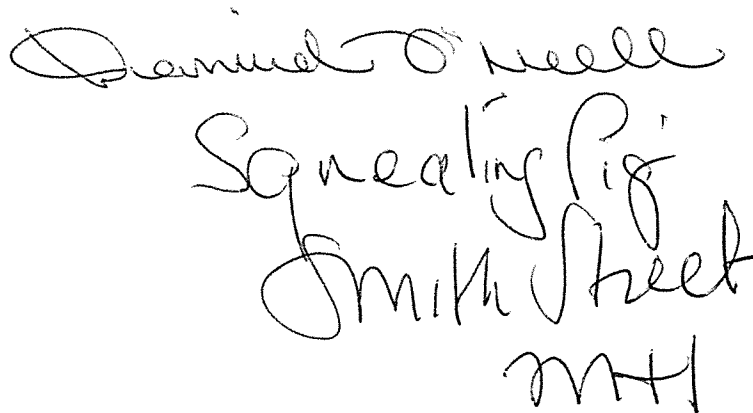 Diarmuid O'Neill
Squealing Pig
Smith Street
MH